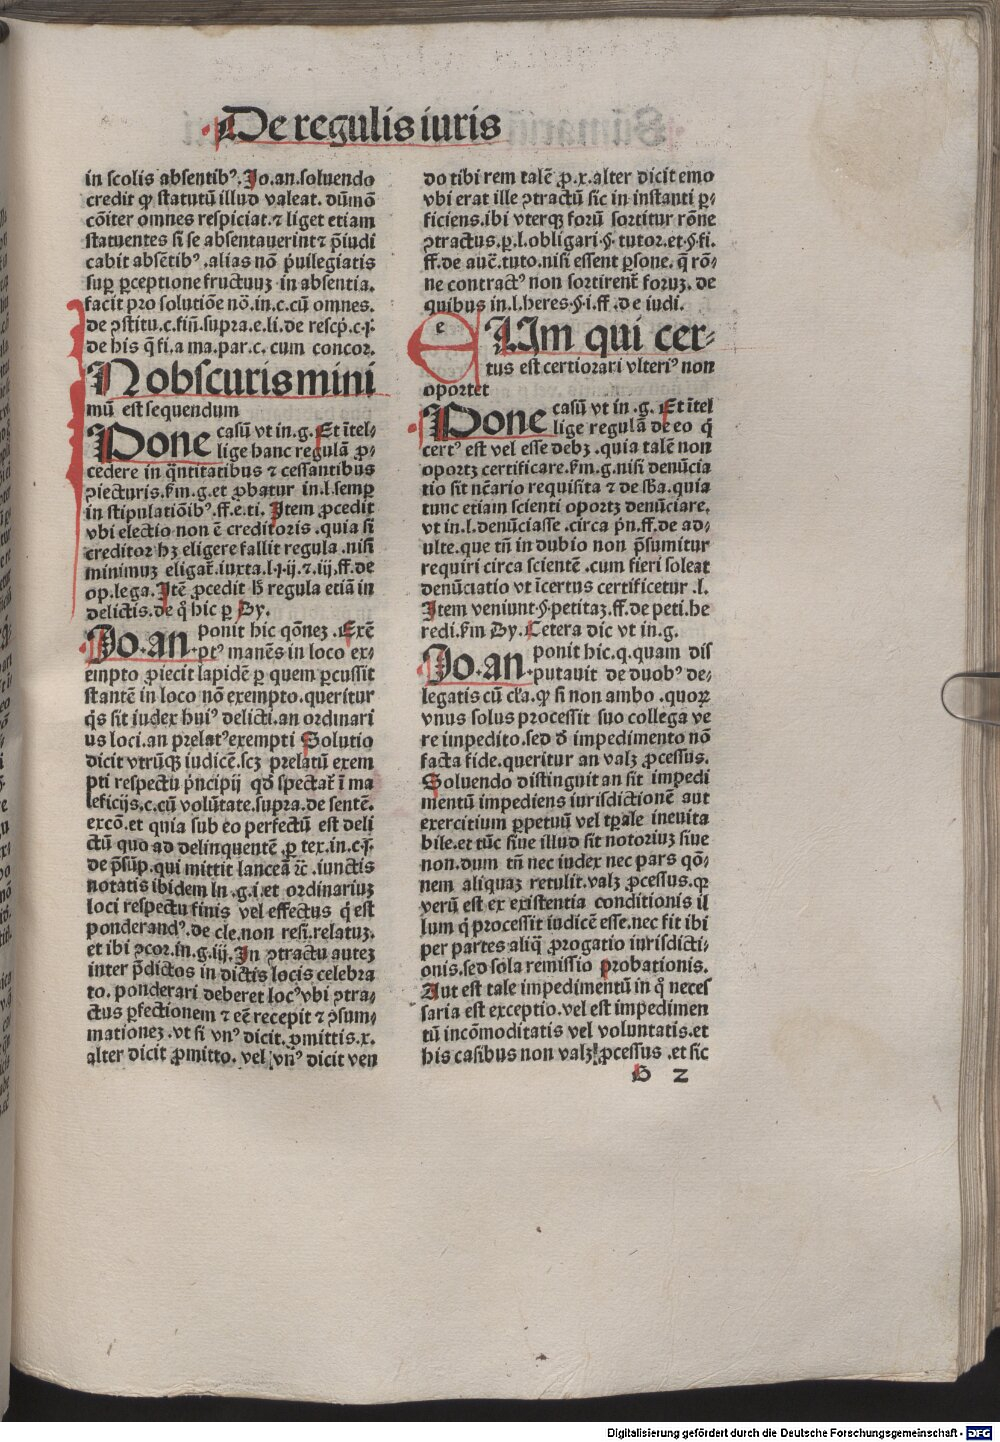 De regulis iuris
in scolis absentibꝰ. Jo.an.soluendo
credit ꝙ statutū illud valeat. dūmō
cōiter omnes respiciat.⁊ liget etiam
statuentes si se absentauerint⁊ p̄iudi
cabit absētibꝰ .alias nō p̉uilegiatis
suꝑ ꝑceptione fructuuꝫ in absentia.
facit pro solutiōe nō.in.c.cū omnes.
de ꝯstitu.c.fiī.supra.e.li.de rescp̉.c.j.
de his q̄ fi.a ma.par.c. cum concor.
N obscuris mini
mū est sequendum
Pone casū vt in.g. Et ītel⸗
lige hanc regulā ꝓ⸗
cedere in q̄ntitatibus ⁊ cessantibus
ꝯiecturis.fm.g.et ꝓbatur in.l.semꝑ
in stipulatiōibꝰ.ff.e.ti. Item ꝓcedit
vbi electio non ē creditoris .quia si
creditor hꝫ eligere fallit regula .nisi
minimuꝫ eligat̄.iuxta.l.j.ij.⁊.iij.ff.de
op.lega. Jtē ꝓcedit h̄ regula etiā in
delictis.de q̄ hic ꝑ Dy.
Jo.an. ponit hic qōneꝫ .Exē
ptꝰ manēs in loco ex⸗
empto ꝓiecit lapidē ꝑ quem ꝑcussit
stantē in loco nō exempto.queritur
q̉s sit iudex huiꝰ delicti.an ordinari
us loci.an prelatꝰexempti Solutio
dicit vtrūqꝫ iudicē.scꝫ prelatū exem
pti respectu p̉ncipij qd̓ spectat̄ ī ma
leficijs.c.cū volūtate.supra.de sentē.
excō.et quia sub eo perfectū est deli
ctū quo ad delinquentē.ꝑ tex.in.c.j.
de p̄sūp.qui mittit lanceā ⁊c̄ .iunctis
notatis ibidem ln .g.i.et ordinariuꝫ
loci respectu finis vel effectus q̉ est
ponderandꝰ.de cle.non resi.relatuꝫ.
et ibi ꝯcor.in.g.iij.Jn ꝯtractu auteꝫ
inter p̄dictos in dictis locis celebra
to. ponderari deberet locꝰvbi ꝯtra⸗
ctus ꝑfectionem ⁊ eē recepit ⁊ ꝯsum⸗
mationeꝫ .vt si vnꝰ dicit. ꝓmittis.x.
alter dicit ꝓmitto. vel vnꝰ dicit ven
do tibi rem talē ꝓ.x.alter dicit emo
vbi erat ille ꝯtractū sic in instanti ꝑ⸗
ficiens.ibi vterqꝫ forū sortitur rōne
ꝯtractus.ꝑ.l.obligari.§.tutor.et.§.fi.
ff.de auc̄.tuto.nisi essent ꝑsone. q̄ rō⸗
ne contractꝰ non sortirent̄ foruꝫ. de
quibus in.l.heres.§.i.ff .d e iudi.
e UM qui cer⸗
tus est certiorari vlteriꝰ non
oportet
Pone casū vt in .g. Et ītel
lige regulā de eo q̉
certꝰ est vel esse debꝫ .quia talē non
oportꝫ certificare.fm.g.nisi denūcia
tio sit nc̄ario requisita ⁊ de sb̄a.quia
tunc etiam scienti oportꝫ denūciare.
vt in.l.denūciasse .circa p̉n.ff.de ad⸗
ulte.que tn̄ in dubio non p̄sumitur
requiri circa scientē .cum fieri soleat
denūciatio vt īcertus certificetur .l.
Item veniunt.§.petitaꝫ.ff.de peti.he
redi.fm Dy. Cetera dic vt in.g.
Jo.an. ponit hic.q.quam dis
putauit de duobꝰ de⸗
legatis cū cl̄a.ꝙ si non ambo .quoꝝ
vnus solus processit suo collega ve
re impedito.sed d̓ impedimento nō
facta fide.queritur an valꝫ ꝓcessus.
Soluendo distinguit an sit impedi
mentū impediens iurisdictionē aut
exercitium ꝑpetuū vel tꝑale ineuita
bile.et tūc siue illud sit notoriuꝫ siue
non.dum tn̄ nec iudex nec pars qō⸗
nem aliquaꝫ retulit.valꝫ ꝓcessus.ꝙ
verū est ex existentia conditionis il
lum q̉ processit iudicē esse.nec fit ibi
per partes aliq̄ ꝓrogatio iurisdicti⸗
onis.sed sola remissio probationis.
Aut est tale impedimentū in q̉ neces
saria est exceptio.vel est impedimen
tū incōmoditatis vel voluntatis.et
his casibus non valꝫ ꝓcessus .et sic
B 2
Digitalisierung gefördert durch die Deutsche Forschungsgemeinschaft - DFG